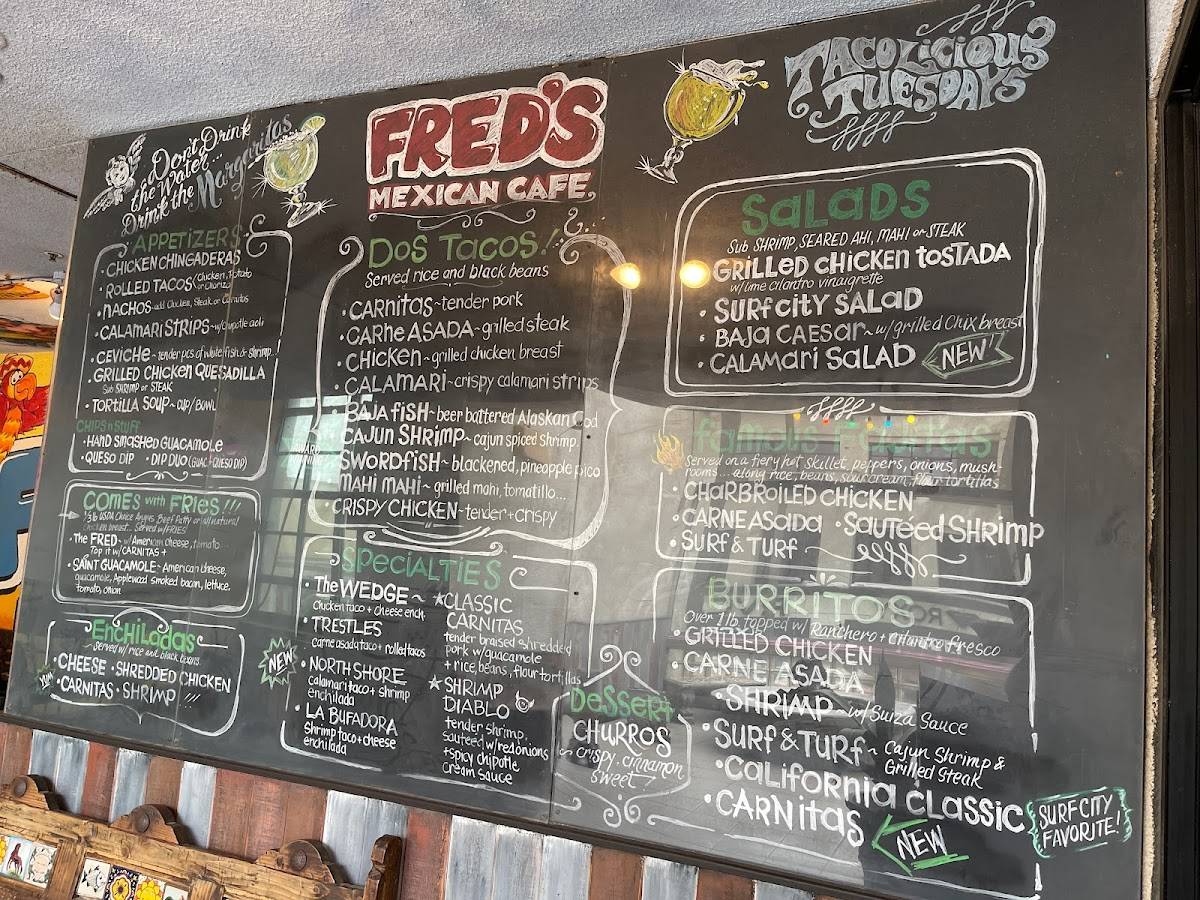 Don't Drink
the Water...
Drink the Margaritas
APPETIZERS
• CHICKEN CHINGADERAS
• ROLLED TACOS (Chicken, Potato
or Chorizo
• NACHOS add Chicken, Steak or Carnitas
• CALAMARI STRIPS ~ w/Chipotle aoli
• CEVICHE ~ tender pcs of white fish & shrimp
• GRILLED CHICKEN QUESADILLA
Sub SHRIMP or STEAK
• TORTILLA SOUP ~ CUP/BOWL
CHIPS n STUFF
• HAND SMASHED GUACAMOLE
• QUESO DIP • DIP DUO (GUAC + QUESO DIP)
COMES with FRIES!!!
1/3 lb USDA Choice Angus Beef Patty or all natural
chicken breast... Served w/FRIES
• The FRED ~ w/American cheese, tomato...
Top it w/CARNITAS +
• SAINT GUACAMOLE - American cheese,
guacamole, Applewood smoked bacon, lettuce,
tomato, onion
ENCHILADAS
served w/rice and black beans
• CHEESE • SHREDDED CHICKEN
• CARNITAS • SHRIMP !!!
YUM
FRED'S
MEXICAN CAFE
DOS TACOS!
Served rice and black beans
• CARNITAS ~ tender pork
• CARNE ASADA - grilled steak
• CHICKEN ~ grilled chicken breast
• CALAMARI ~ crispy calamari strips
• BAJA FISH ~ beer battered Alaskan Cod
CAJUN SHRIMP ~ cajun spiced shrimp
SWORDFISH ~ blackened, pineapple pico
MAHI MAHI ~ grilled mahi, tomatillo...
• CRISPY CHICKEN - tender + crispy
SPECIALTIES
• The WEDGE ~
Chicken taco + cheese ench.
• TRESTLES
carne asada taco + rolled tacos
NEW
• NORTH SHORE
calamari taco + shrimp
enchilada
• LA BUFADORA
Shrimp taco + cheese
enchilada
★ CLASSIC
CARNITAS
tender braised shredded
pork w/guacamole
+ rice, beans, flour tortillas
★ SHRIMP
DIABLO
tender shrimp,
sauteed w/red onions
+ spicy chipotle
cream sauce
DESSERT
CHURROS
~ crispy. cinnamon
sweet
TACOLICIOUS
TUESDAYS
SALADS
Sub SHRIMP, SEARED AHI, MAHI or STEAK
• GRILLED CHICKEN TOSTADA
w/lime cilantro vinaigrette
• SURF CITY SALAD
• BAJA CAESAR ~ w/grilled Chix breast
• CALAMARI SALAD NEW!
FAMOUS FAJITAS
Served on a fiery hot skillet, peppers, onions, mush-
rooms... along rice, beans, sour cream, flour tortillas
• CHARBROILED CHICKEN
• CARNE ASADA • SAUTÉED SHRIMP
• SURF & TURF
BURRITOS
Over 1 lb. topped w/ Ranchero + cilantro fresco
• GRILLED CHICKEN
• CARNE ASADA
• SHRIMP ~ w/Suiza Sauce
• SURF & TURF ~ Cajun Shrimp &
Grilled Steak
• CALIFORNIA CLASSIC
• CARNITAS NEW
SURF CITY
FAVORITE!